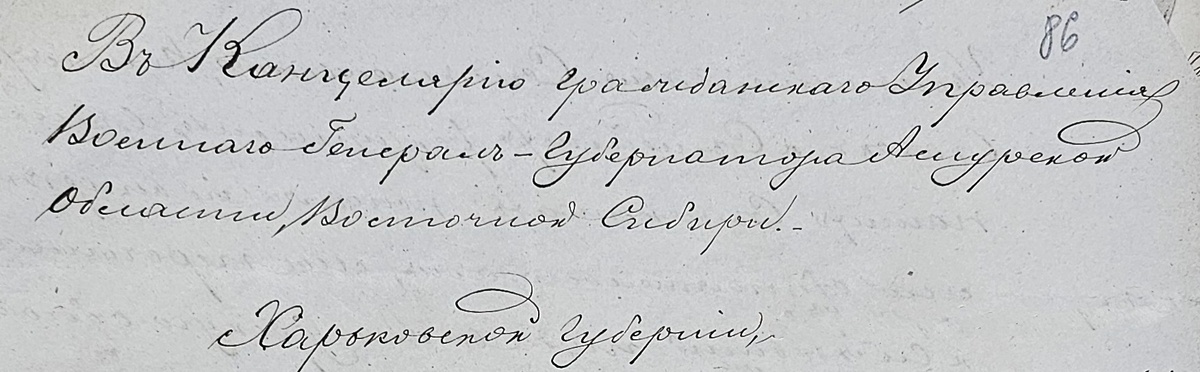 86
Въ Канцелярію гражданскаго Управленія
Военнаго Генералъ-Губернатора Амурской
Области, Восточной Сибири.-
Харьковской Губерніи,